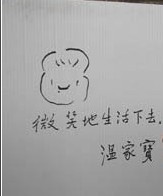 微笑地生活下去.
温家寶